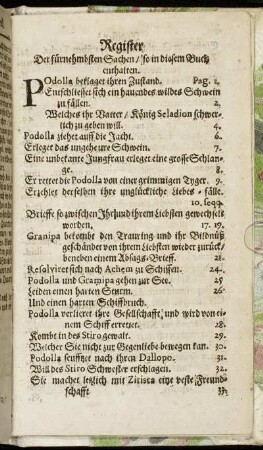 Register
Der fürnehmbsten Sachen / so in diesem Buch
enthalten.
POdolla beklaget ihren Zustand. Pag. 1.
Entschliesset sich ein hauendes wildes Schwein
zu fällen. 2.
Welches ihr Vatter / König Seladion schwer-
lich zu geben will. 4.
Podolla ziehet auff die Jacht. 6.
Erleget das ungeheure Schwein. 7.
Eine unbekante Jungfrau erleget eine grosse Schlan-
ge. 8.
Errettet die Podolla von einer grimmigen Tyger. 9.
Erzehlet derselben ihre unglückliche Liebes-fälle.
10. seqq.
Brieffe so zwischen Ihr und ihrem Liebsten gewechselt
worden. 17. 19.
Granipa bekombt den Trauring und ihr Bildnüß
geschändet von ihrem Liebsten wieder zurück /
beneben einem Absags-Brieff. 21.
Resolviret sich nach Achem zu Schiffen. 24.
Podolla und Granipa gehen zur See. 25
Leiden einen harten Sturm. 26
Und einen harten Schiffbruch.
Podolla verlieret ihre Gesellschafft, und wird von ei-
nem Schiff errettet. 28.
Kombt in des Stiro gewalt. 29.
Welcher Sie nicht zur Gegenliebe bewegen kan. 30.
Podolla seufftzet nach ihren Dallopo. 31.
Will des Stiro Schwester erschlagen. 32.
Sie machet letzlich mit Zirisca eine veste Freund-
schafft 33.